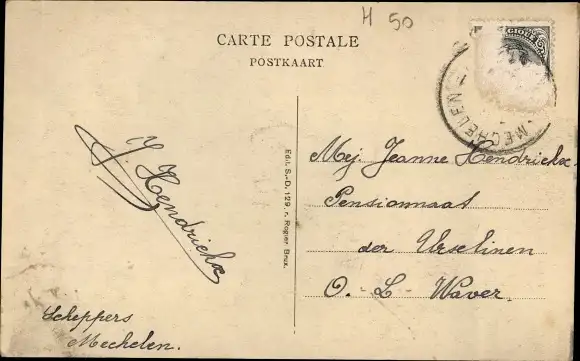 H 50
CARTE POSTALE
POSTKAART
GIQUE
MECHELEN
MECHELEN
Y. Hendrickx
Scheppers
Mechelen.
Edit. S.-D. 129, r. Rogier Brux.
Mej. Jeanne Hendrickx
Pensionnaat
der Urselinen
O. L. Waver.